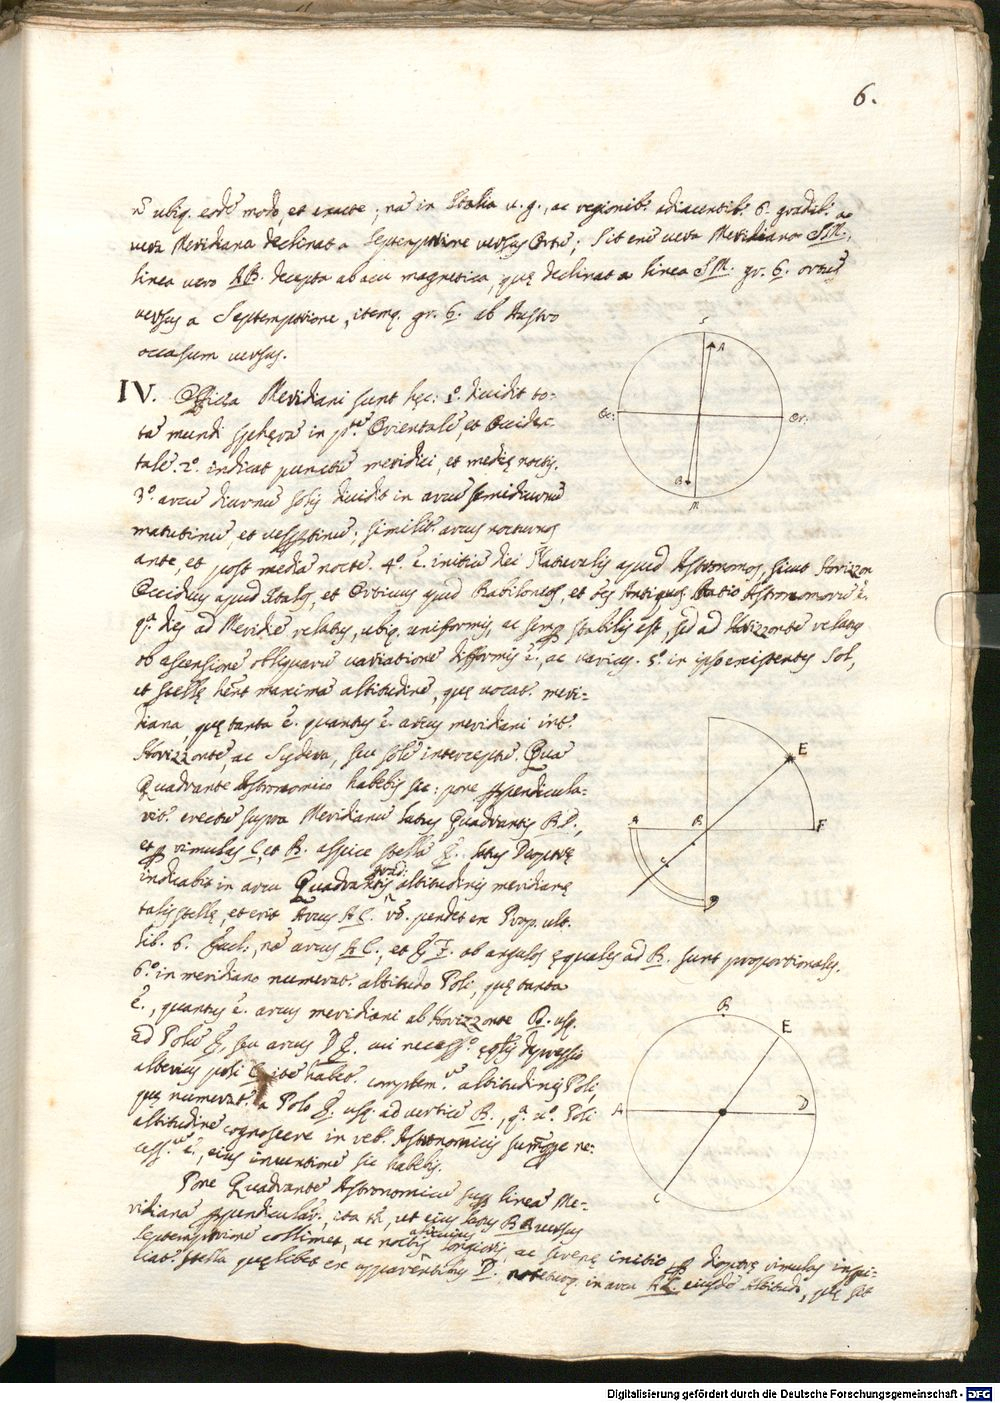 6.
n̄ ubiq. eodē modo, et exacte; nā in Italia v. g., ac regionib. adiacentib. 6. gradib. ac
vera Meridiana declinat a Septemptrione versus Ortū; Sit enī vera Meridiana SM.,
linea vero AB. decepta ab acu magnetica, quę declinat a linea SM. gr. 6. ortū
versus a Septemptrione, itemq. gr. 6. ab Austro
occasum versus.
IV. Officia Meridiani sunt hęc: 1º. dividit to-
tā mundi sphęrā in ptē Orientalē, et Occidēn-
talē. 2º. indicat punctū meridiei, et medię noctis.
3º. arcū diurnū solis dividit in arcū semidiurnū
matutinū, et vespertinū; similit. arcus nocturnos
ante, et post mediā noctē. 4º. ē. initiū diei Naturalis apud Astronomos, sicut Horizzon
Occiduus apud Italos, et Ortivus apud Babilonios, et Antiquos Ratio Astronomorū ē.
qª. dies ad Meridiē relatus, ubiq. uniformis, ac semp. stabilis est, sed ad Horizzontē relatus
ob ascensionē obliquarū variationē difformis ē., ac varius. 5º. in ipso existentes Sol,
et stellę hēnt maximā altitudinē, quę vocat. meri-
diana, quę tanta ē. quantus ē. arcus meridiani int.
Horizzontē, ac Sydera, seu Solē interceptū. Quā
Quadrante Astronomico habebis sic: pone perpendicula-
rit. erectū supra Meridianū latus Quadrantis BD.,
et p. rimulas C, et B. aspice stellā E. latus Dioptrę
indicabit in arcu Quadrantis grad. altitudinis meridianę
talis stellę, et erit Arcus AC. pendet ex Prop. ult.
lib. 6. Eucl.; nā arcus AC., et EF. ob angulos ęquales ad B. sunt proportionales.
6º. in meridiano numerat. altitudo Poli, quę tanta
ē., quantus ē. arcus meridiani ab Horizzonte D. usq.
ad Polū E, seu arcus DE. cui necess.º ęqlis depressio
alterius poli C. itē habet. complem.tū altitudinis Poli,
quę numerat. a Polo E. usq. ad verticē B., qª. vº. Poli
altitudinē cognoscere in reb. Astronomicis summope ne-
cess.ū ē., eius inventionē sic habebis.
Pone Quadrantē Astronomicū sup. lineā Me-
ridianā perpendicular., ita tn̄, ut eius latus BA versus
Septemptrionē collimet, ac noctis alicuius longioris, ac serenę initio p. dioptrę rimulas inspi-
ciat. stella quęlibet ex apparentibus D. noteturq. in arcu AC. eiusdē Altitudo, quę sit
S
A
Oc:
Or:
B
M
E
A
B
F
C
D
B
E
A
D
C
Digitalisierung gefördert durch die Deutsche Forschungsgemeinschaft - DFG